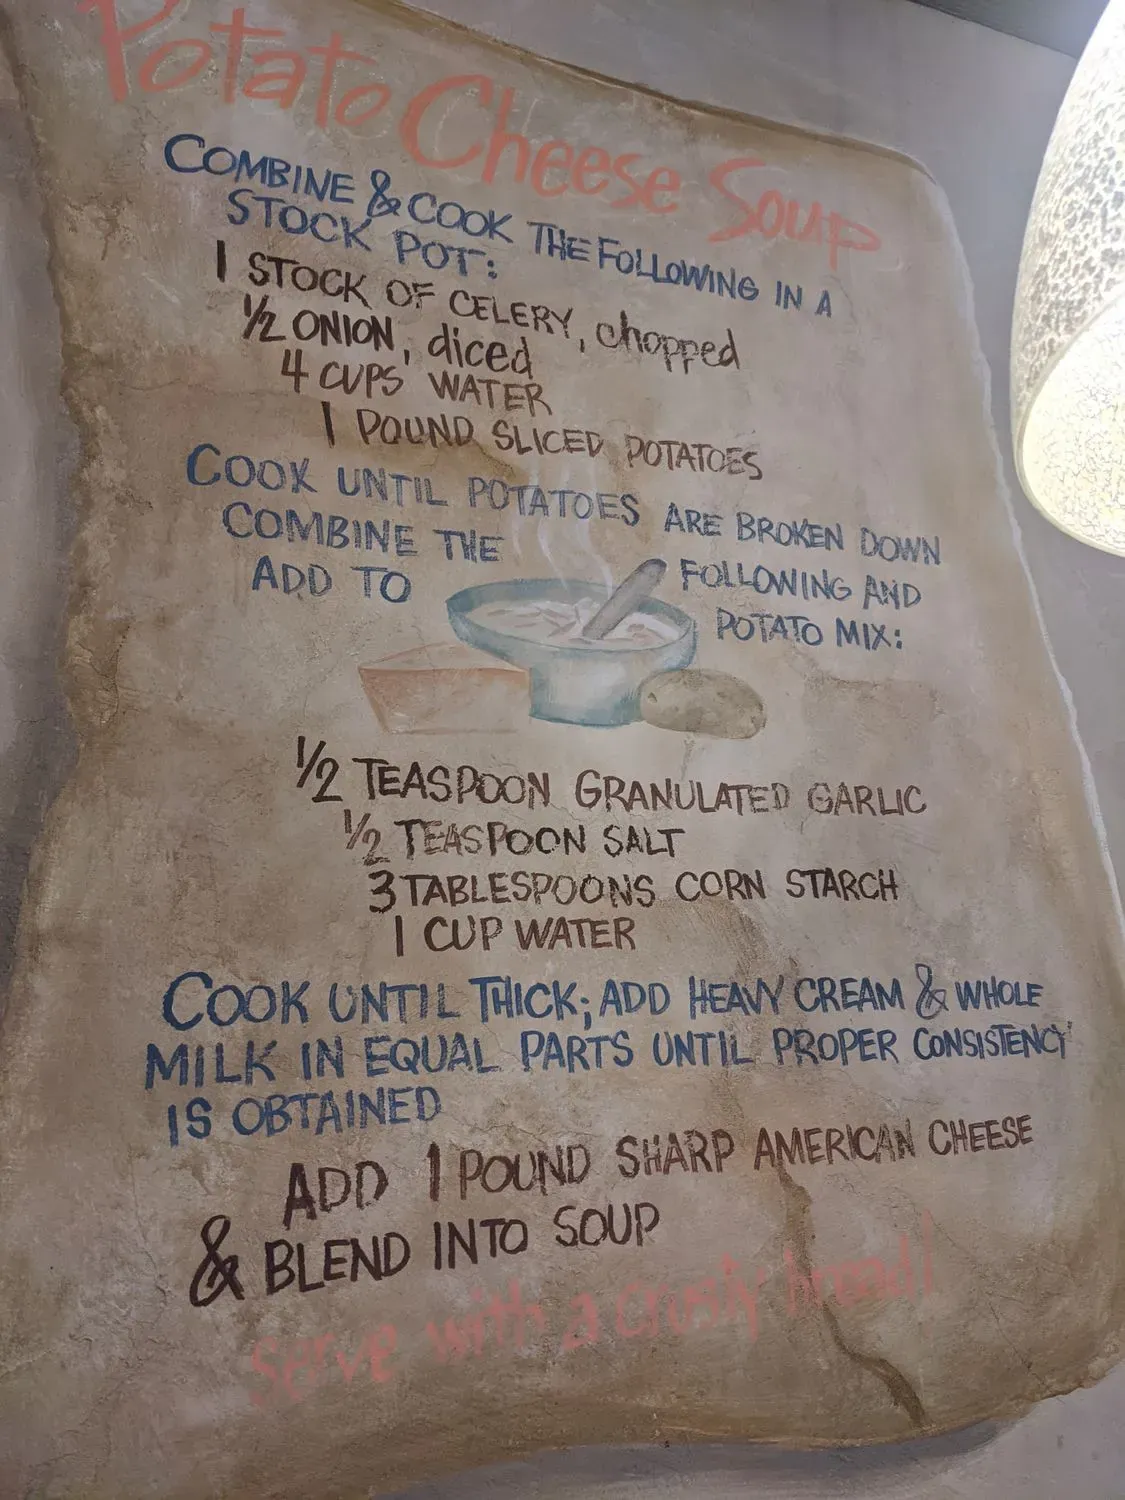 Potato Cheese Soup
COMBINE & COOK THE FOLLOWING IN A
STOCK POT:
1 STOCK OF CELERY, chopped
1/2 ONION, diced
4 CUPS WATER
1 POUND SLICED POTATOES
COOK UNTIL POTATOES ARE BROKEN DOWN
COMBINE THE FOLLOWING AND
ADD TO POTATO MIX:
1/2 TEASPOON GRANULATED GARLIC
1/2 TEASPOON SALT
3 TABLESPOONS CORN STARCH
1 CUP WATER
COOK UNTIL THICK; ADD HEAVY CREAM & WHOLE
MILK IN EQUAL PARTS UNTIL PROPER CONSISTENCY
IS OBTAINED
ADD 1 POUND SHARP AMERICAN CHEESE
& BLEND INTO SOUP
Serve with a crusty bread!